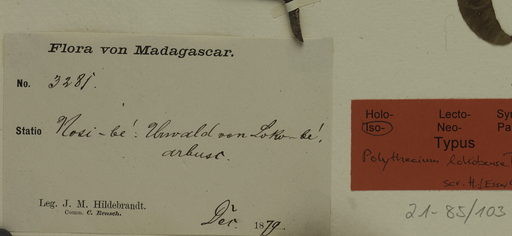 Flora von Madagascar.
No. 3281.
Statio Nosi-bé: Urwald von Loko-bé,
arbusc.
Leg. J. M. Hildebrandt.
Comm. C. Rensch.
Dec. 1879.
Holo- Lecto- Sy
Iso- Neo- Pa
Typus
Polythecium lokobense
21-85/103